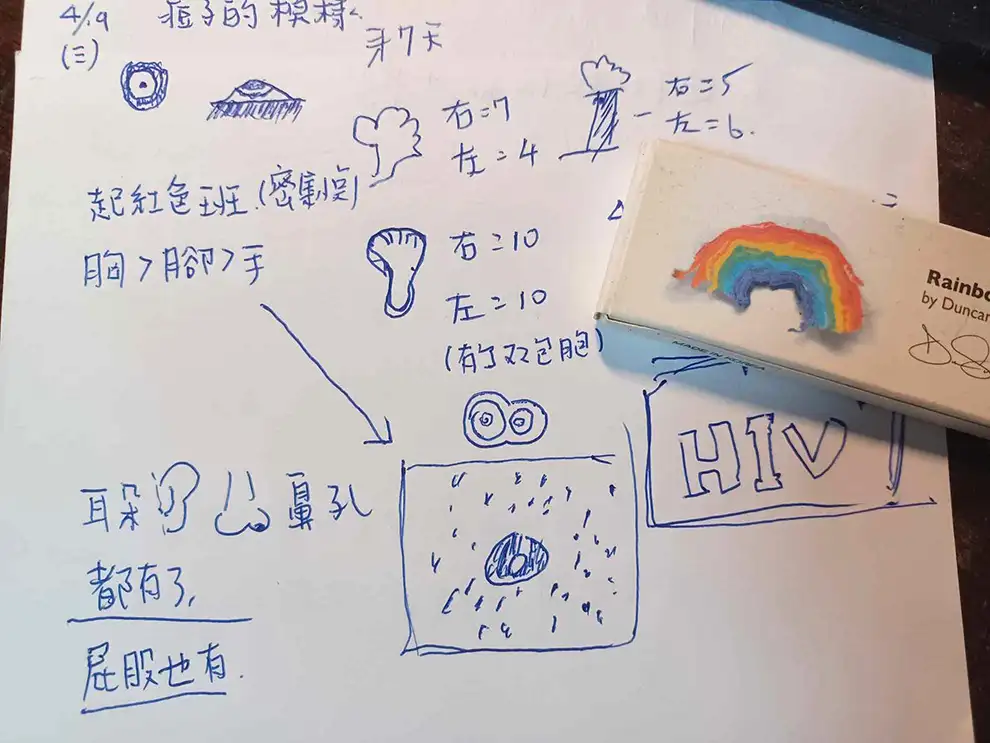 4/.9 痘子的模樣
(三) 第7天
右=7
左=4
右=5
左=6.
起紅色班.(密集)
胸>腳>手
右=10
左=10
(有了双包胞)
Rainbo
by Duncan
MADE IN
HIV
耳朵 鼻孔
都有了,
屁股也有.